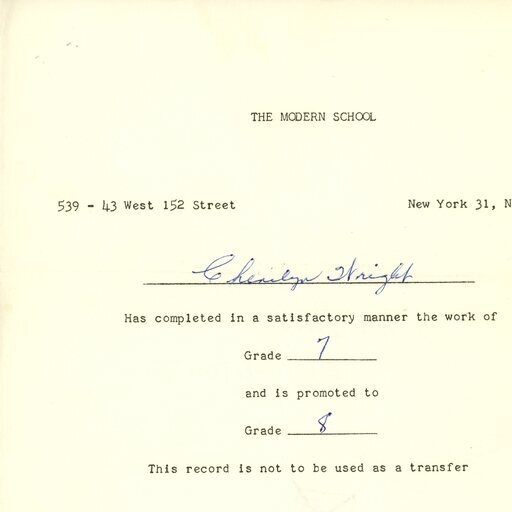 THE MODERN SCHOOL
539 - 43 West 152 Street New York 31, N
Cherilyn Wright
Has completed in a satisfactory manner the work of
Grade 7
and is promoted to
Grade 8
This record is not to be used as a transfer